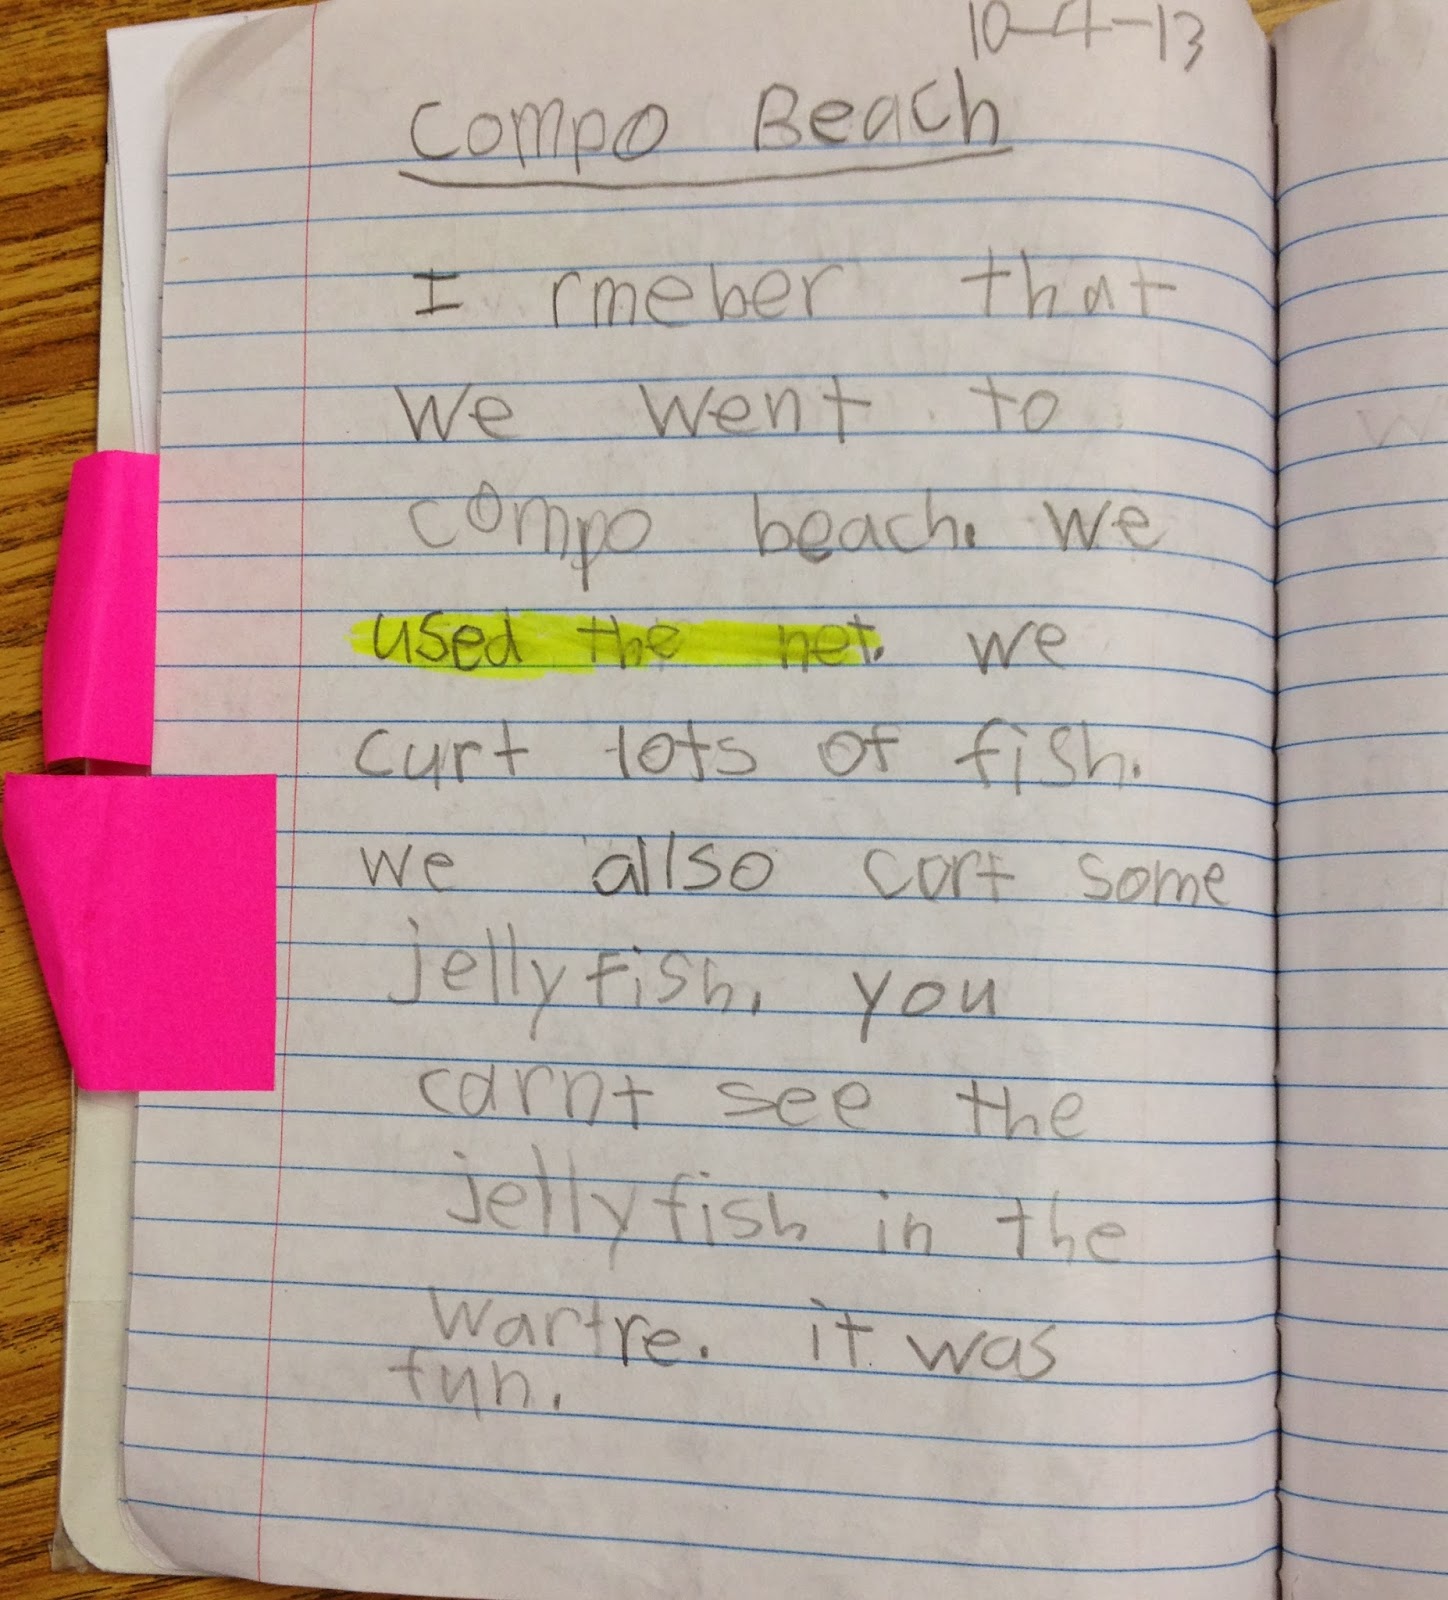 10-4-13
Compo Beach
I rmeber that
we went to
compo beach. we
used the net. we
curt lots of fish.
we allso cort some
jellyfish, you
carnt see the
jellyfish in the
wartre. it was
fun.